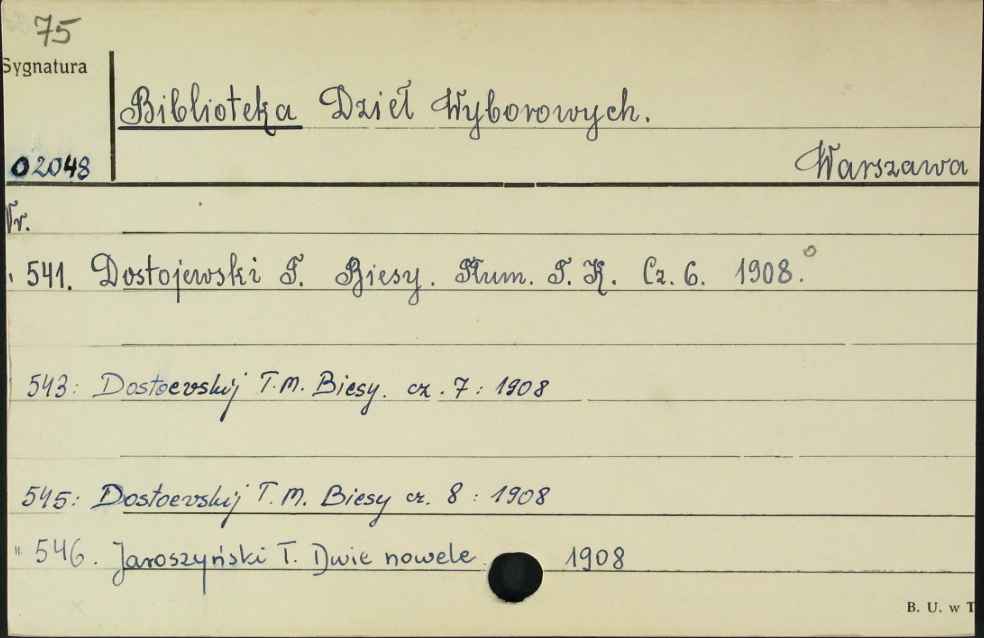 75
Sygnatura
Biblioteka Dzieł Wyborowych.
02048
Warszawa
Nr.
541. Dostojewski T. Biesy. Tłum. T. K. Cz. 6. 1908.
543: Dostoevskij T.M. Biesy. cz. 7: 1908
545: Dostoevskij T.M. Biesy cz. 8: 1908
" 546. Jaroszyński T. Dwie nowele 1908
B. U. w T